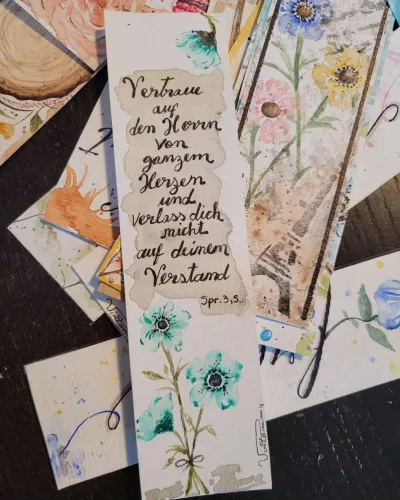 Vertraue
auf
den Herrn
von
ganzem
Herzen
und
verlass dich
nicht
auf deinem
Verstand
Spr. 3,5